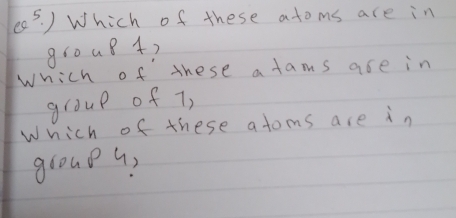 ec 5.) Which of these atoms are in
group 1?
Which of these atams are in
group of 7,
Which of these atoms are in
group 4?